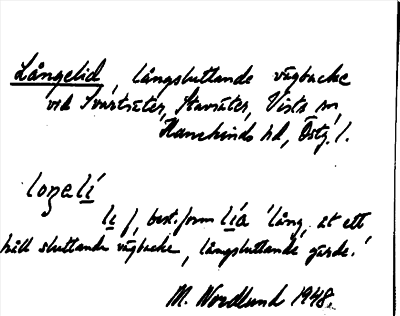 Långelid, långsluttande vägbacke
vid Svartsäter, Stavsäter, Vists sn,
Hanekinds hd, Östg. l.
loŋelí
lı f, best. form lía 'lång, åt ett
håll sluttande vägbacke, långsluttande gärde.'
M. Nordlund 1948.